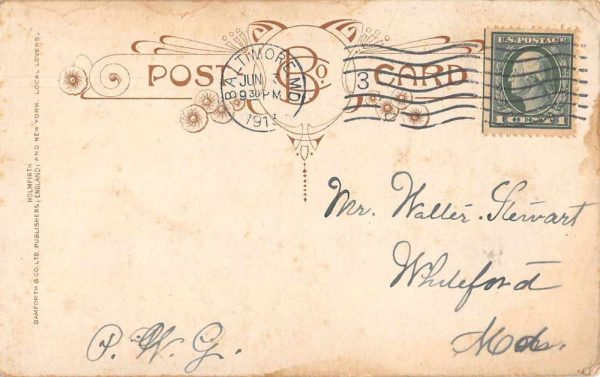 POST CARD
B Co.
BALTIMORE, MD.
JUN 3
930PM
1913
3
U.S. POSTAGE
1 CENT 1
HOLMFIRTH
BAMFORTH & CO. LTD. PUBLISHERS (ENGLAND) AND NEW YORK. LOCAL LOVERS.
Mr. Walter Stewart
Whiteford
Md.
P. W. G.